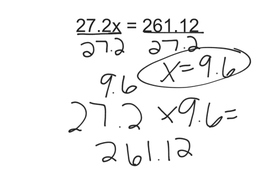 27.2x = 261.12
27.2 27.2
x=9.6
9.6
27.2 x9.6=
261.12